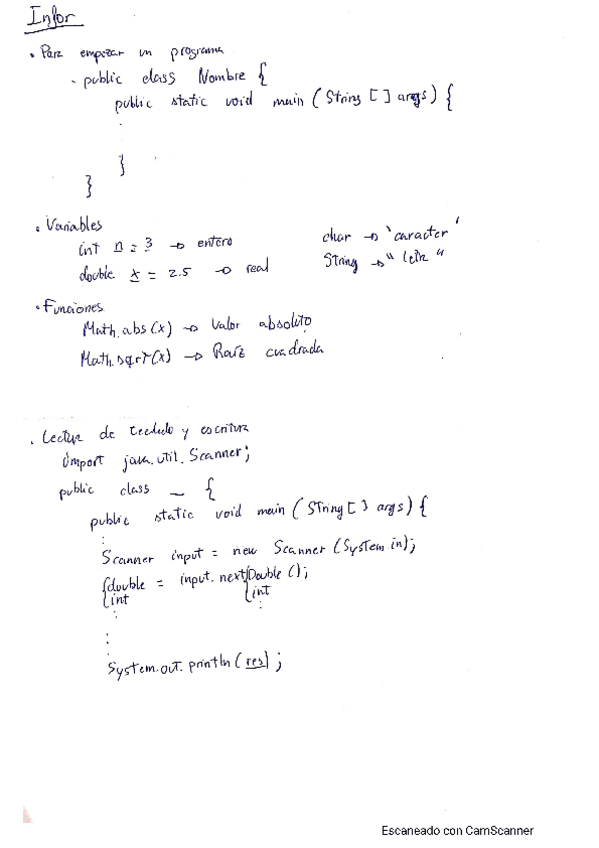 Infor
• Para empezar un programa
- public class Nombre {
public static void main (String [] args) {
}
}
• Variables
int n = 3 → entero
double x = 2.5 → real
char → 'caracter'
String → " letra "
• Funciones
Math.abs(x) → Valor absoluto
Math.sqrt(x) → Raíz cuadrada
• Lectura de teclado y escritura
import java.util.Scanner;
public class _ {
public static void main (String [] args) {
Scanner input = new Scanner (System.in);
{double = input.next{Double ();
{int {int
System.out.println (res) ;
Escaneado con CamScanner